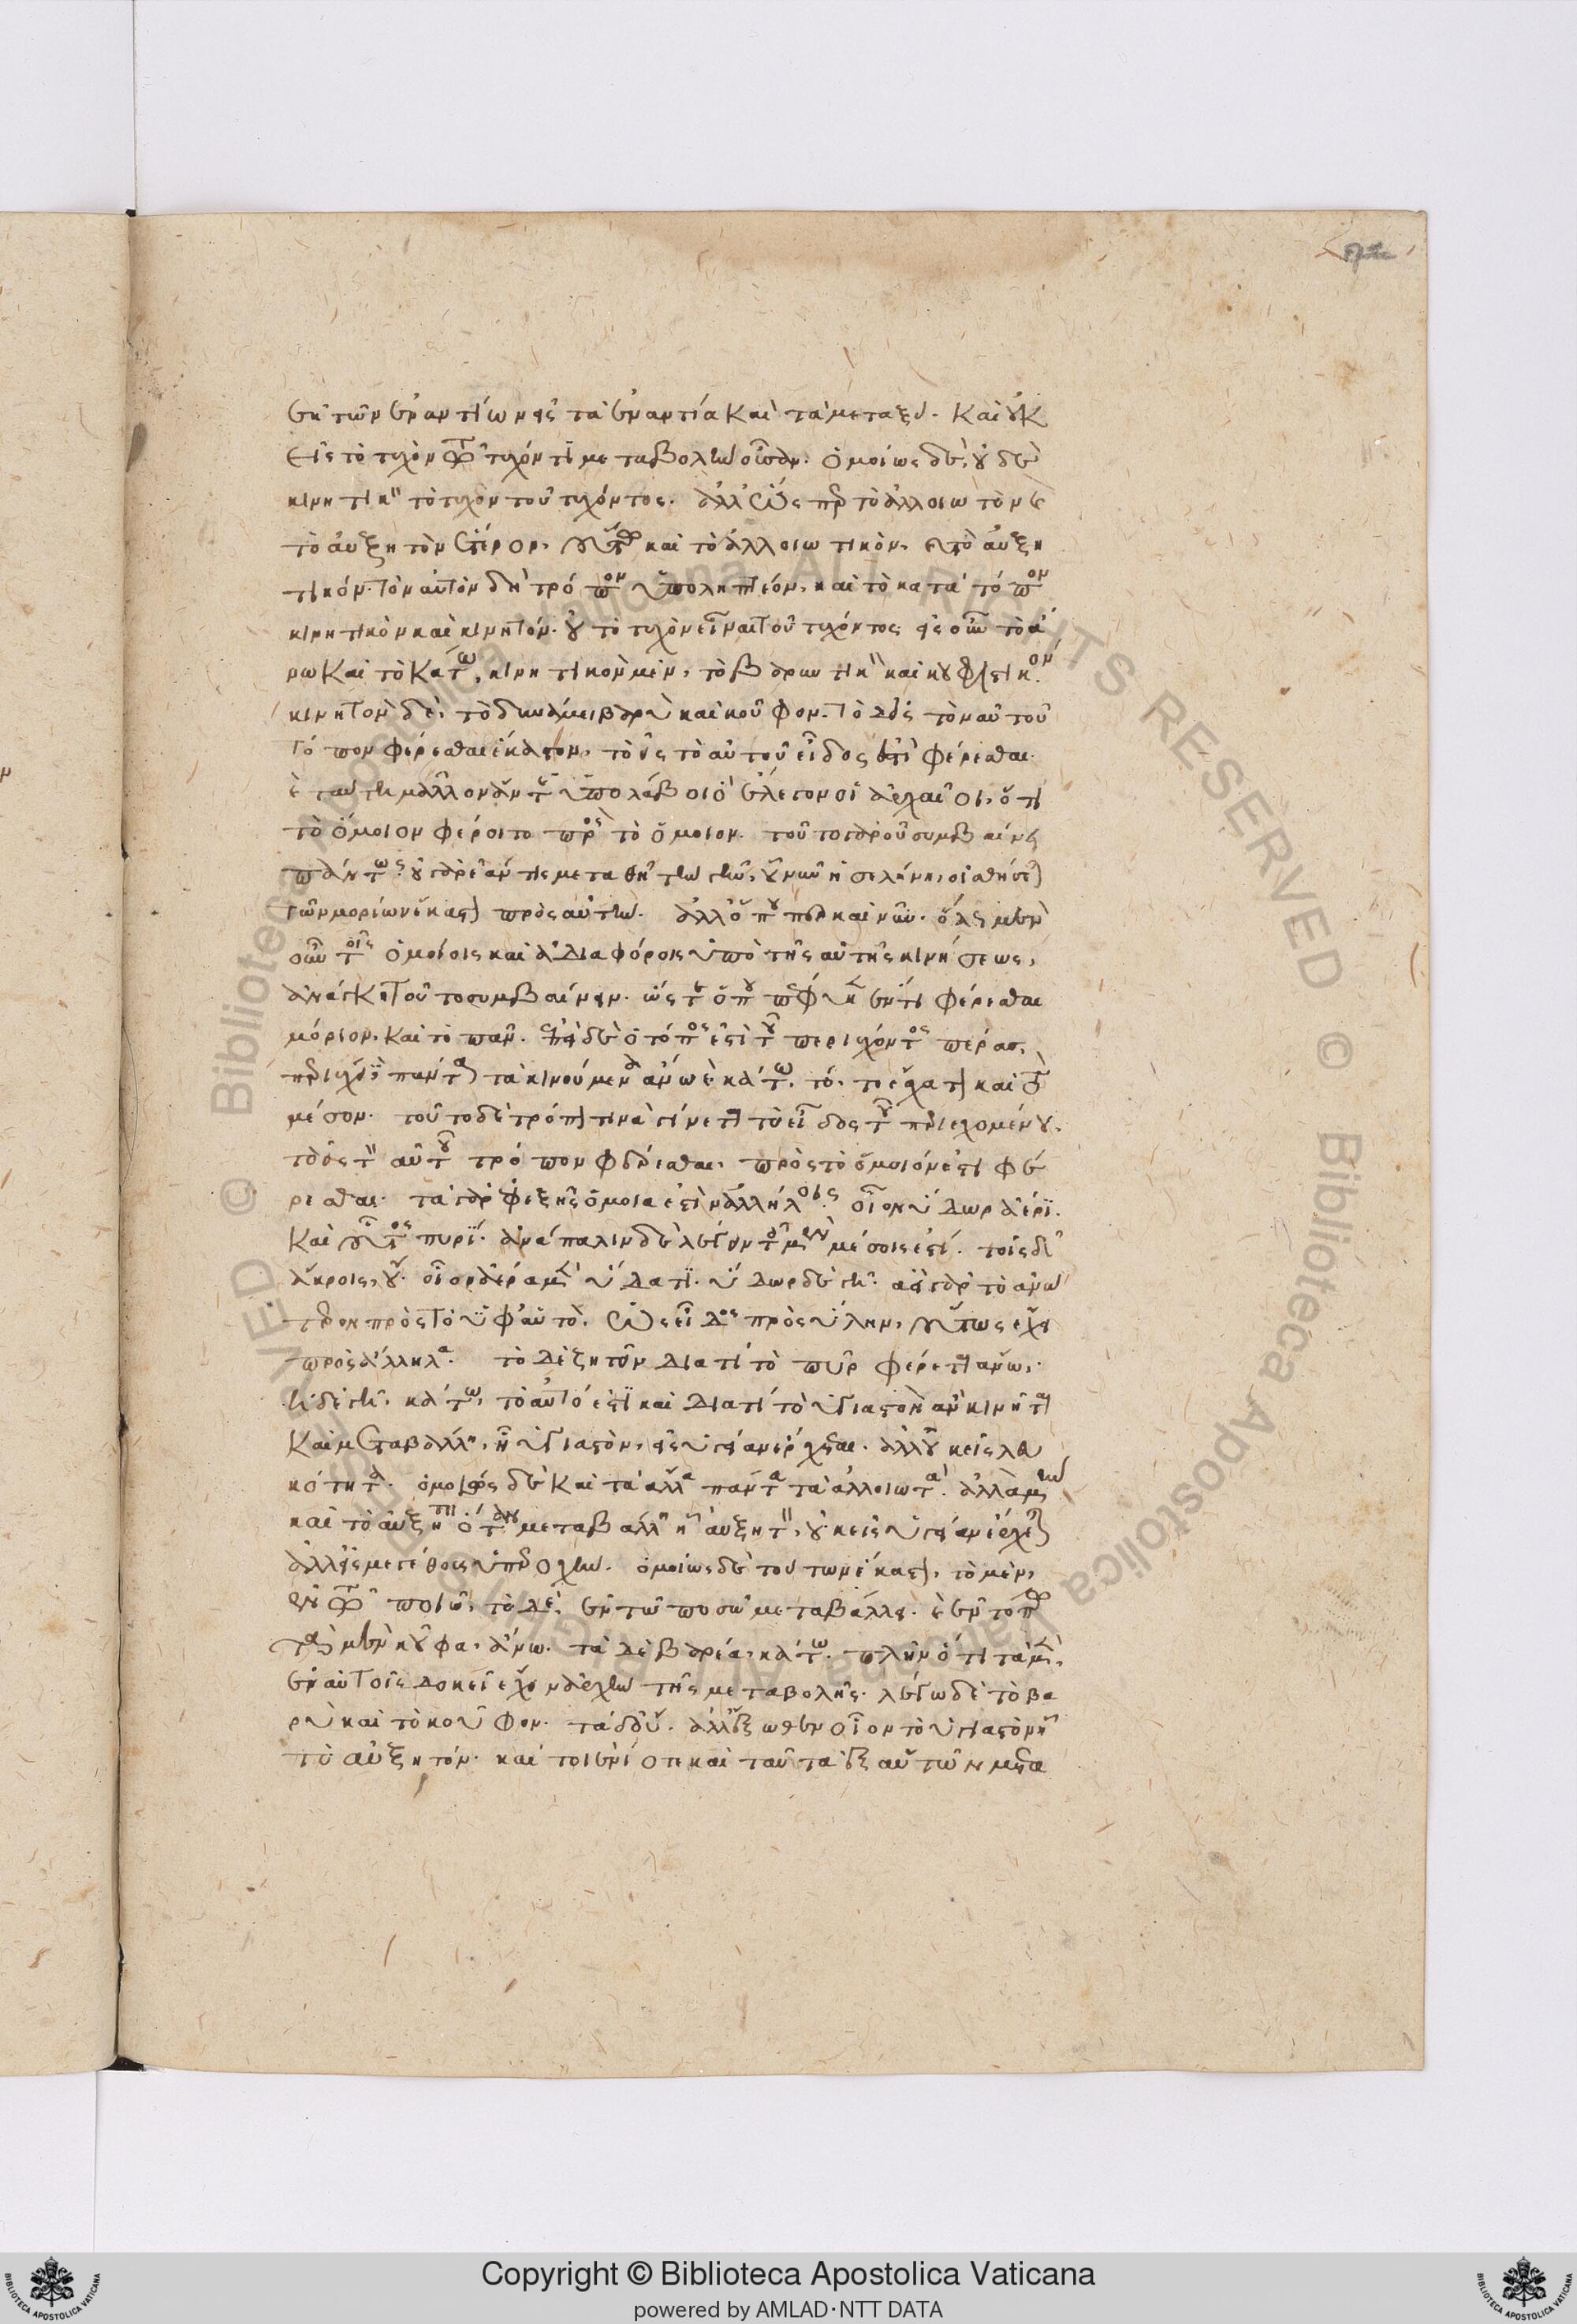 ἐκ τῶν ἐναντίων εἰς τὰ ἐναντία καὶ τὰ μεταξύ. καὶ οὐκ
εἰς τὸ τυχὸν τῷ τυχόντι μεταβολὴ οὖσαν. ὁμοίως δὲ, οὐδὲ
κινητικὸν τὸ τυχὸν τοῦ τυχόντος. ἀλλ' ὥσπερ τὸ ἀλλοιωτὸν καὶ
τὸ αὐξητὸν ἕτερον, οὕτω καὶ τὸ ἀλλοιωτικὸν, καὶ τὸ αὐξη
τικόν. τὸν αὐτὸν δὴ τρόπον ὑποληπτέον, καὶ τὸ κατὰ τόπον
κινητικὸν καὶ κινητόν. οὐ τὸ τυχὸν εἶναι τοῦ τυχόντος. εἰ οὖν τὸ ἄ
νω καὶ τὸ κάτω, κινητικὸν μὲν, τὸ βαρυντικὸν καὶ κουφιστικόν.
κινητὸν δὲ, τὸ δυνάμει βαρὺ καὶ κοῦφον. τὸ δ' εἰς τὸν αὑτοῦ
τόπον φέρεσθαι ἕκαστον, τὸ εἰς τὸ αὑτοῦ εἶδος ἐστὶ φέρεσθαι.
καὶ ταύτῃ μᾶλλον ἄν τις ὑπολάβοι ὃ ἔλεγον οἱ ἀρχαῖοι, ὅτι
τὸ ὅμοιον φέροιτο πρὸς τὸ ὅμοιον. τοῦτο γὰρ οὐ συμβαίνει
πάντως. οὐ γὰρ ἐάν τις μεταθῇ τὴν γῆν, οὗ νῦν ἡ σελήνη, οἰσθήσεται
τῶν μορίων ἕκαστον πρὸς αὐτὴν. ἀλλ' ὅπου περ καὶ νῦν. ὅλως μὲν
οὖν τοῖς ὁμοίοις καὶ ἀδιαφόροις ὑπὸ τῆς αὐτῆς κινήσεως,
ἀνάγκη τοῦτο συμβαίνειν. ὥστε ὅπου πέφυκεν ἕν τι φέρεσθαι
μόριον, καὶ τὸ πᾶν. ἐπεὶ δὲ ὁ τόπος ἐστὶ τοῦ περιέχοντος πέρας,
περιέχει πάντα τὰ κινούμενα ἄνω καὶ κάτω, τό, τε ἔσχατον καὶ τὸ
μέσον. τοῦτο δὲ τρόπον τινὰ γίνεται τὸ εἶδος τοῦ περιεχομένου.
τὸ εἰς τὸν αὑτοῦ τρόπον φέρεσθαι, πρὸς τὸ ὅμοιόν ἐστι φέ
ρεσθαι. τὰ γὰρ ἐφεξῆς ὅμοιά ἐστιν ἀλλήλοις. οἷον ὕδωρ ἀέρι.
καὶ οὗτος πυρί. ἀνάπαλιν δὲ λέγειν τοῖς μὲν μέσοις ἐστί. τοῖς δ'
ἄκροις, οὔ. οἷον ἀέρα μὲν ὕδατι. ὕδωρ δὲ γῇ. ἀεὶ γὰρ τὸ ἀνώ
τερον πρὸς τὸ ὑφ' αὑτὸ, ὡς εἶδος πρὸς ὕλην, οὕτως ἔχει
πρὸς ἄλληλα. τὸ δὲ ζητεῖν διατί τὸ πῦρ φέρεται ἄνω,
ἡ δὲ γῆ, κάτω, τὸ αὐτό ἐστι καὶ διατί τὸ ὑγιαστὸν ἂν κινῆται
καὶ μεταβάλλῃ, ᾗ ὑγιαστὸν, εἰς ὑγίειαν ἔρχεσθαι. ἀλλ' οὐκ εἰς λευ
κότητα. ὁμοίως δὲ καὶ τὰ ἄλλα πάντα τὰ ἀλλοιωτά. ἀλλὰ μὴν
καὶ τὸ αὐξητὸν ὅταν μεταβάλλῃ ᾗ αὐξητὸν, οὐκ εἰς ὑγίειαν ἔρχεται
ἀλλ' εἰς μεγέθους ὑπεροχὴν. ὁμοίως δὲ τούτων ἕκαστον, τὸ μὲν,
ἐν τῷ ποιῷ, τὸ δὲ, ἐν τῷ ποσῷ μεταβάλλει. καὶ ἐν τόπῳ
τὰ μὲν κοῦφα, ἄνω. τὰ δὲ βαρέα, κάτω. πλὴν ὅτι τὰ μὲν,
ἐν αὑτοῖς δοκεῖ ἔχειν ἀρχὴν τῆς μεταβολῆς. λέγω δὲ τὸ βα
ρὺ καὶ τὸ κοῦφον. τὰ δ' οὔ. ἀλλ' ἔξωθεν οἷον τὸ ὑγιαστὸν ἢ
τὸ αὐξητόν. καί τοι ἐνίοτε καὶ ταῦτα ἐξ αὑτῶν μετα